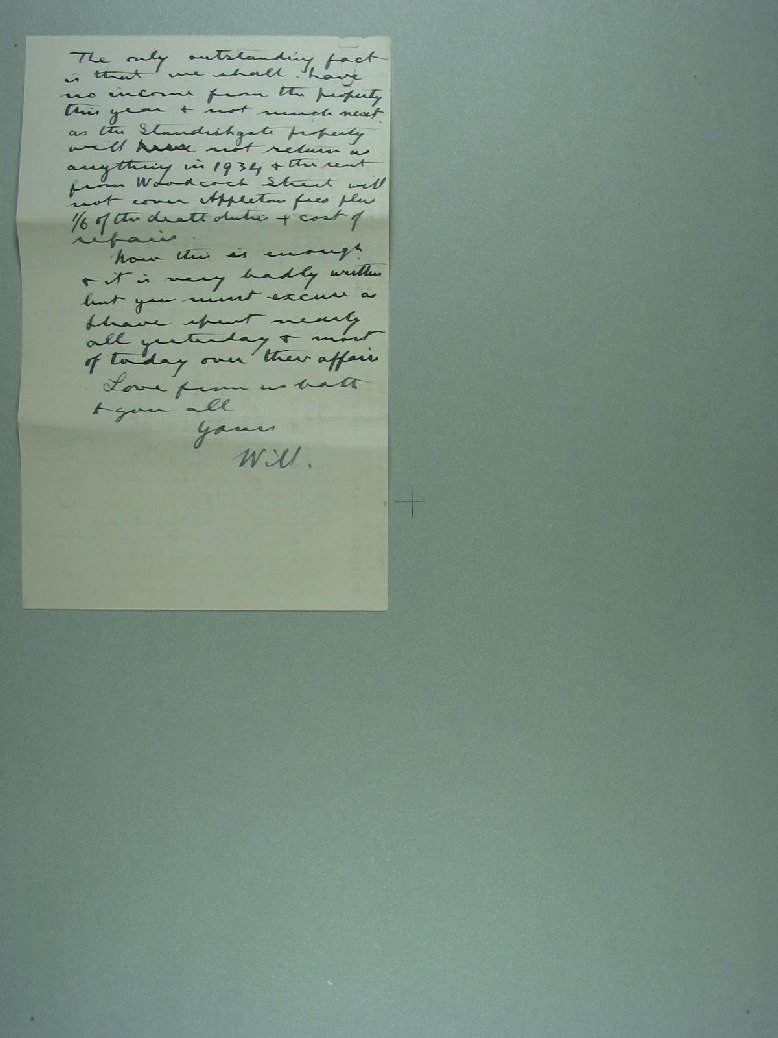 The only outstanding fact
is that we shall have
no income from the property
this year & not much next
as the Standishgate property
will not return us
anything in 1934 & the rent
from Woodcock Street will
not cover Appleton fees plus
1/6 of the death duties & cost of
repairs.
Now this is enough
& it is very badly written
but you must excuse as
I have spent nearly
all yesterday & most
of today over these affairs
Love from us both
to you all
Yours
Will.